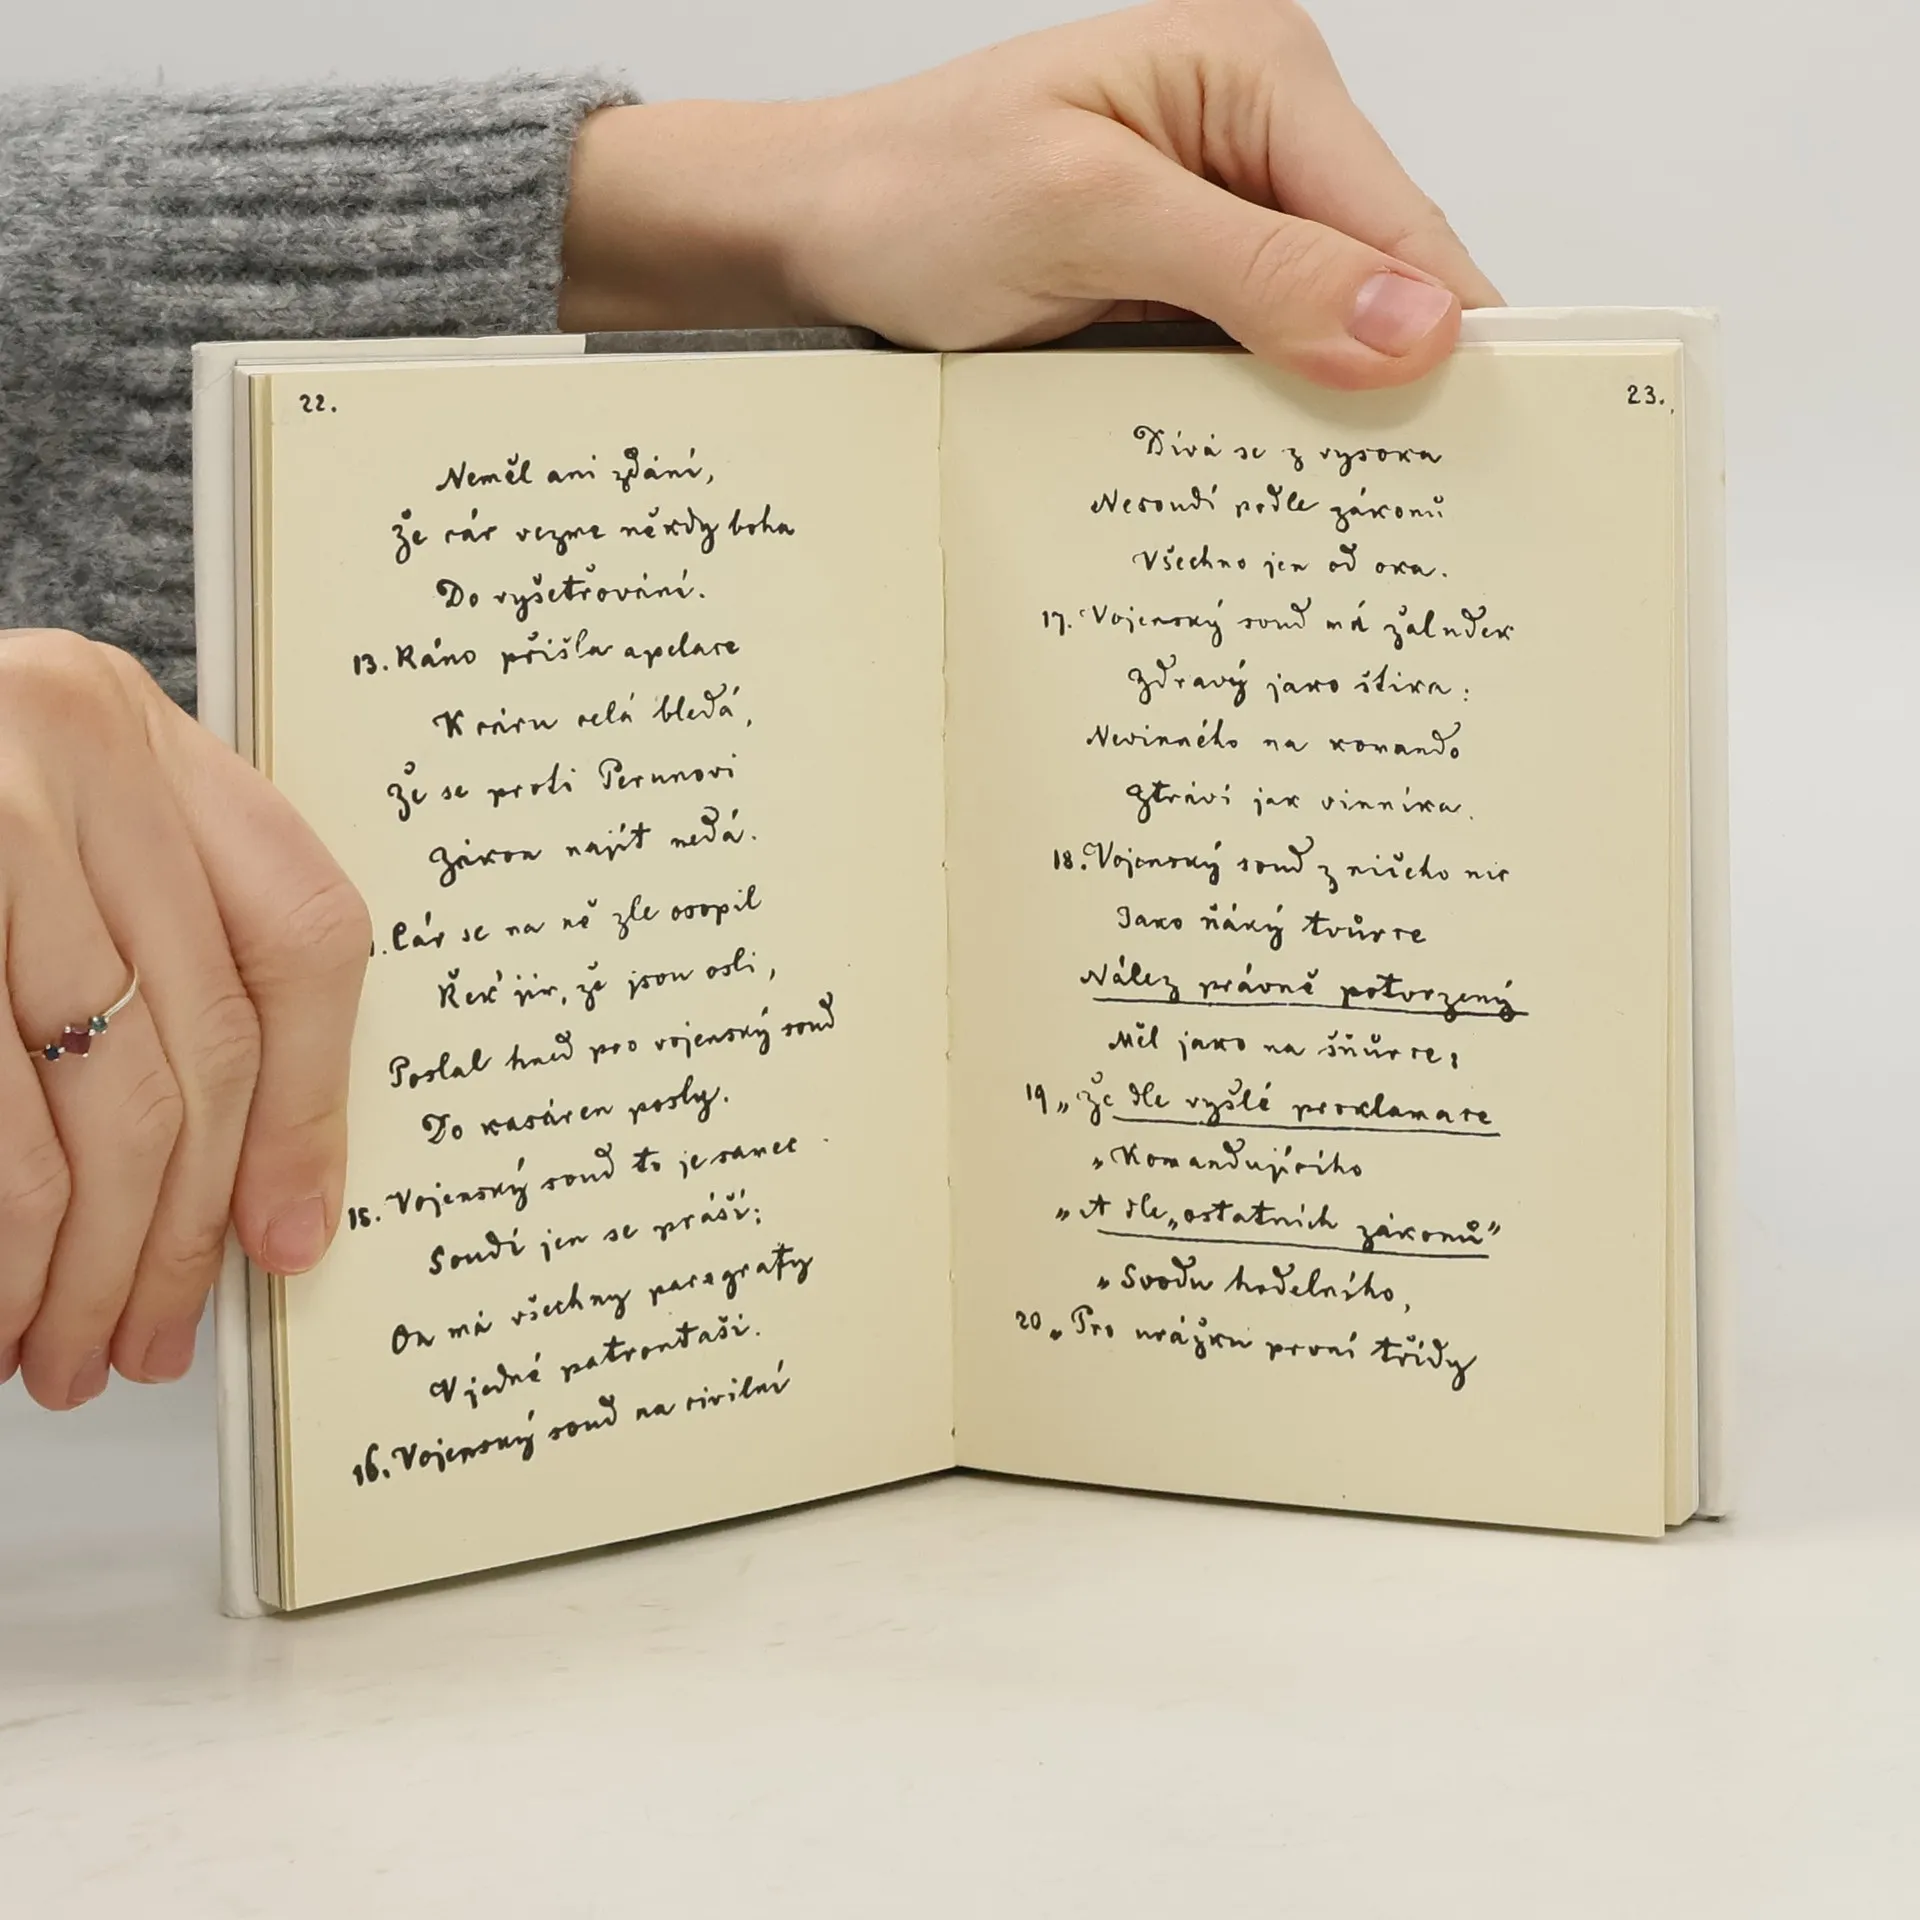 22.
Neměl ani zdání,
Že cár vezme někdy boha
Do vyšetřování.
13. Ráno přišla apelace
K cáru celá bledá,
Že se proti Perunovi
Zákon najít nedá.
. Cár se na ně zle osopil
Řek' jir, že jsou osli,
Poslal hned pro vojenský soud
Do kasáren posly.
15. Vojenský soud to je sanec
Soudí jen se práší;
On má všechny paragrafy
V jedné patrontaši.
16. Vojenský soud na civilní
23.
Dívá se z vysoka
Nesoudí podle zákonů
Všechno jen od oka.
17. Vojenský soud má žaludek
Zdravý jako štika:
Nevinného na komando
Ztráví jak vinníka.
18. Vojenský soud z ničeho nic
Jako ňáký tvůrce
Nález právně potvrzený
Měl jako na šňůrce:
19 „Že dle vyšlé proklamace
„Komandujícího
„A dle „ostatních zákonů"
„Svodu hrdelního,
20 „Pro urážku první třídy